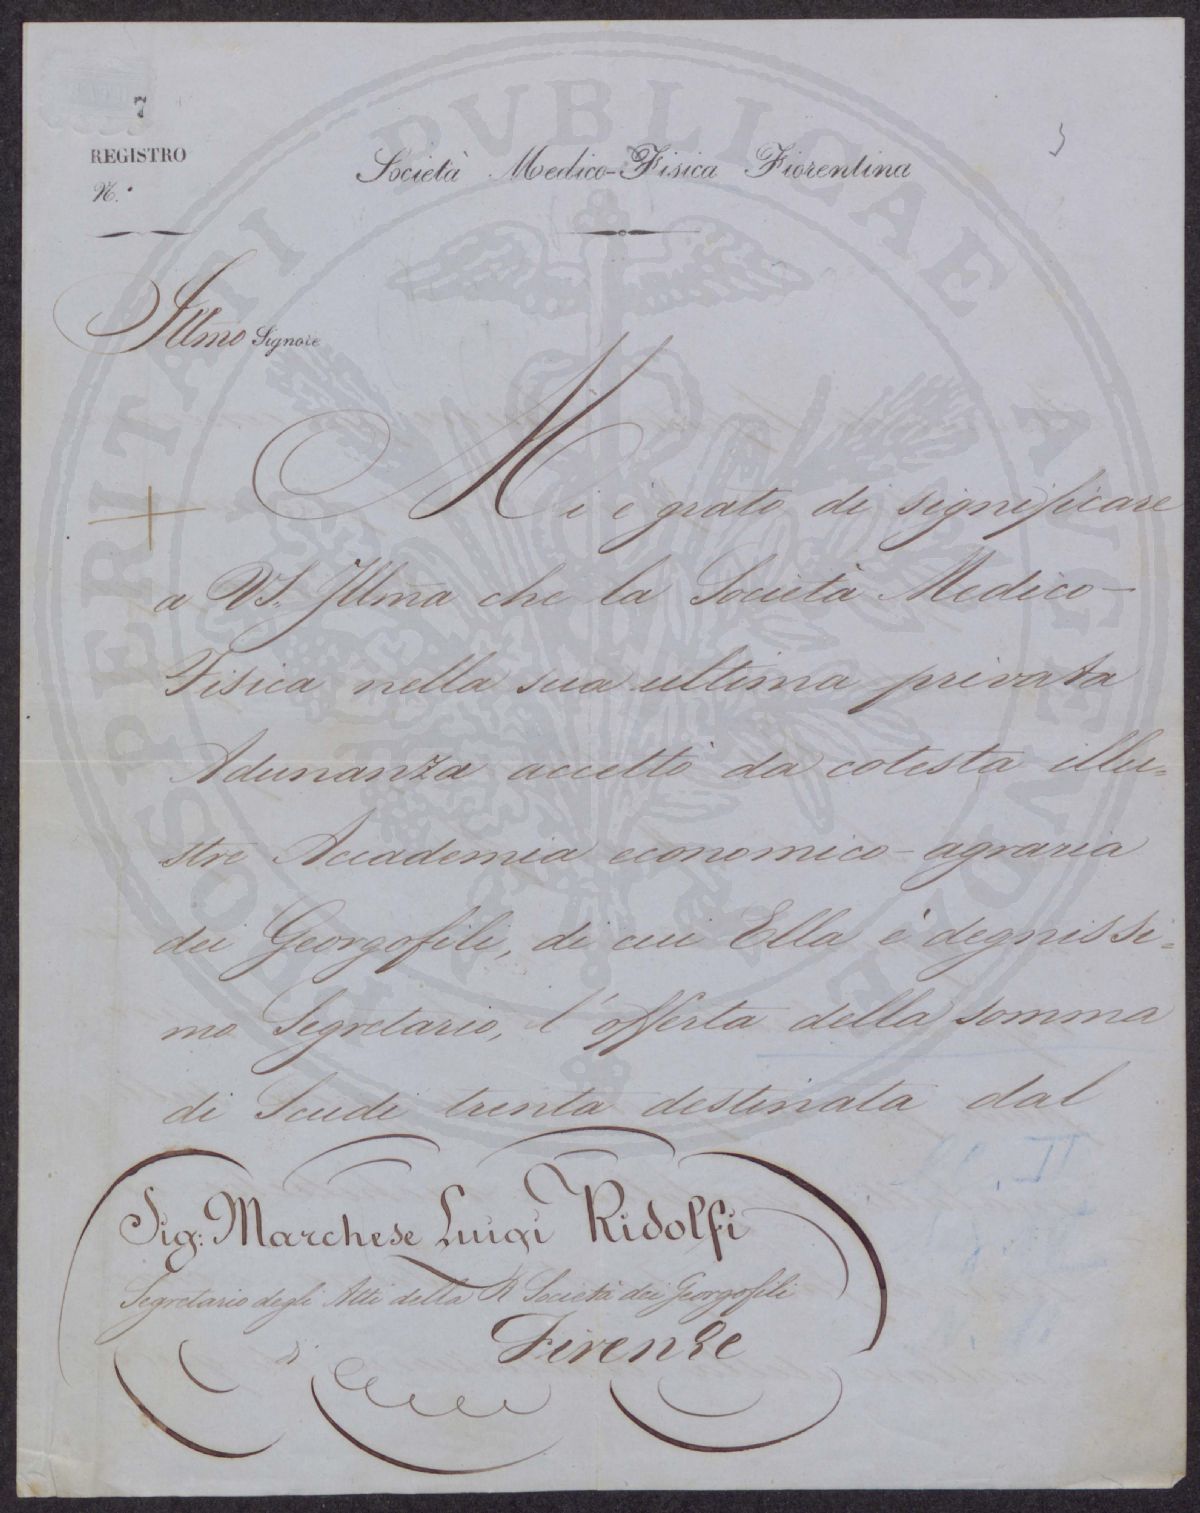 7
REGISTRO
N.°
Società Medico-Fisica Fiorentina
Illmo Signore
Mi è grato di significare
a VS. Illma che la Società Medico-
Fisica nella sua ultima privata
Adunanza accettò da cotesta illu=
stre Accademia economico-agraria
dei Georgofili, di cui Ella è degnissi=
mo Segretario, l'offerta della somma
di Scudi trenta destinata dal
Sig: Marchese Luigi Ridolfi
Segretario degli Atti della R Società dei Georgofili
Firenze
PROSPERITATI PVBLICAE AVGENDAE